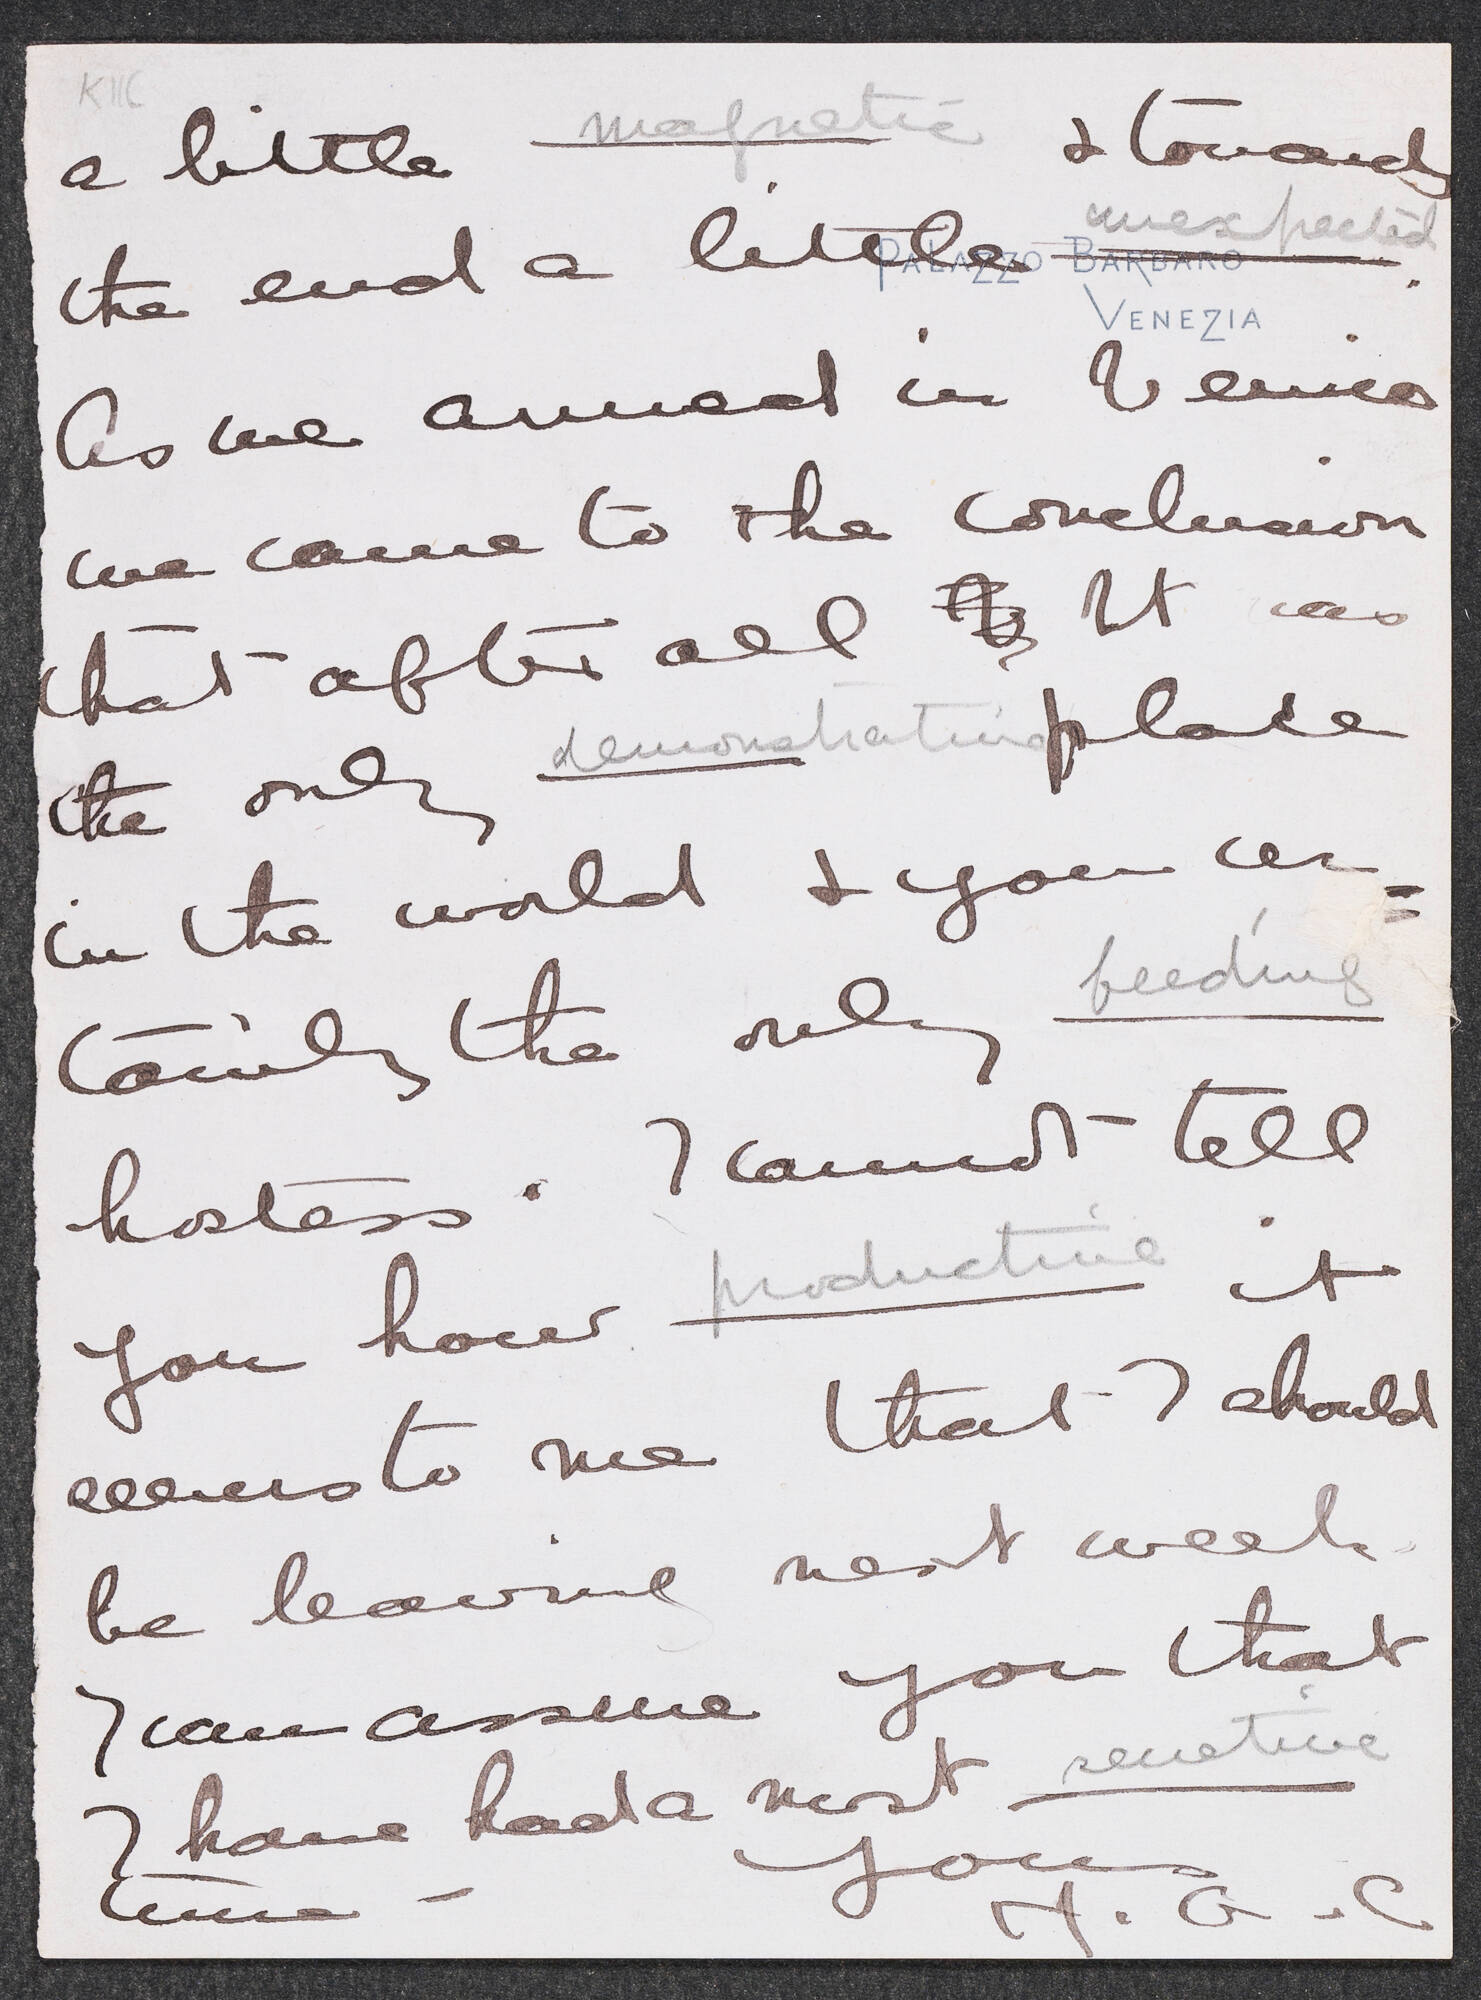 K116
a little magnetic & towards
the end a little unexpected.
PALAZZO BARBARO
VENEZIA
As we arrived in Venice
we came to the conclusion
that after all it was
the only demonstrating place
in the world & you cer=
tainly the only feeding
hostess. I cannot tell
you how productive it
seems to me that I should
be leaving next week.
I can assure you that
I have had a most secretive
time -
Yours
H. G. C